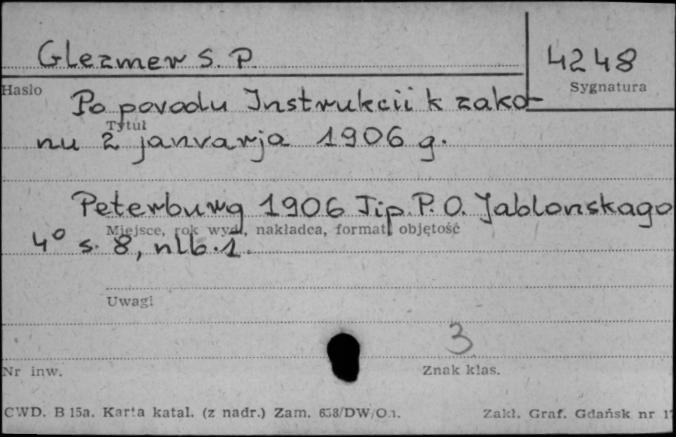 Glezmer S. P.
4248
Hasło
Sygnatura
Po povodu Instrukcii k zako-
Tytuł
nu 2 janvarja 1906 g.
Peterburg 1906 Tip. P. O. Jablonskago
Miejsce, rok wyd., nakładca, format, objętość
4° s. 8, nlb. 1.
Uwagi
3
Nr inw.
Znak klas.
CWD. B 15a. Karta katal. (z nadr.) Zam. 658/DW/O.
Zakł. Graf. Gdańsk nr